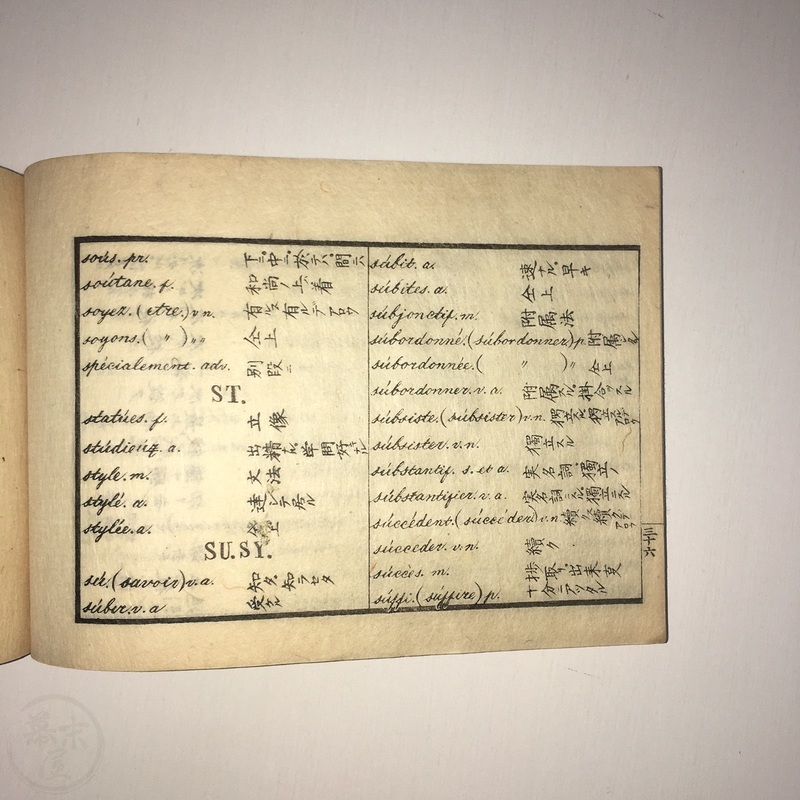 soús. pr. 下ニ.中ニ.於テハ.間ニハ
soútane. f. 和尚ノ上着
soyez. (etre.) v.n. 有ルヌ有ルテアロウ
soyons. ( 〃 ) 〃〃 仝上
spécialement. adv. 別段ニ
ST.
statúes. f. 立像
stúdieúx. a. 出精ナル.学問好キナル
style. m. 文法
stylé. a. 達シテ居ル
stylée. a. 仝上
SU.SY.
sú. (savoir) v.a. 知タ.知ラセタ
súbir. v. a 受タル
súbit. a. 速ナル.早キ
súbites. a. 仝上
súbjonctif. m. 附属法
súbordonné. (súbordonner) p. 附属
súbordonnée. ( 〃 ) 〃 仝上
súbordonner. v. a. 附属スル.掛合ッスル
súbsiste. (súbsister) v.n. 獨立スル獨立
súbsister. v. n. 獨立スル
súbstantif. s. et a. 実名詞.獨立ノ
súbstantifier. v. a. 実名詞ニスル.獨立ニスル
súccédent. (súccéder) v.n 續ク續
súcceder. v. n. 續ク
súccès. m. 捗取リ出来㕝
súffi. (suffire) p. 十分ニアツタル
六十三